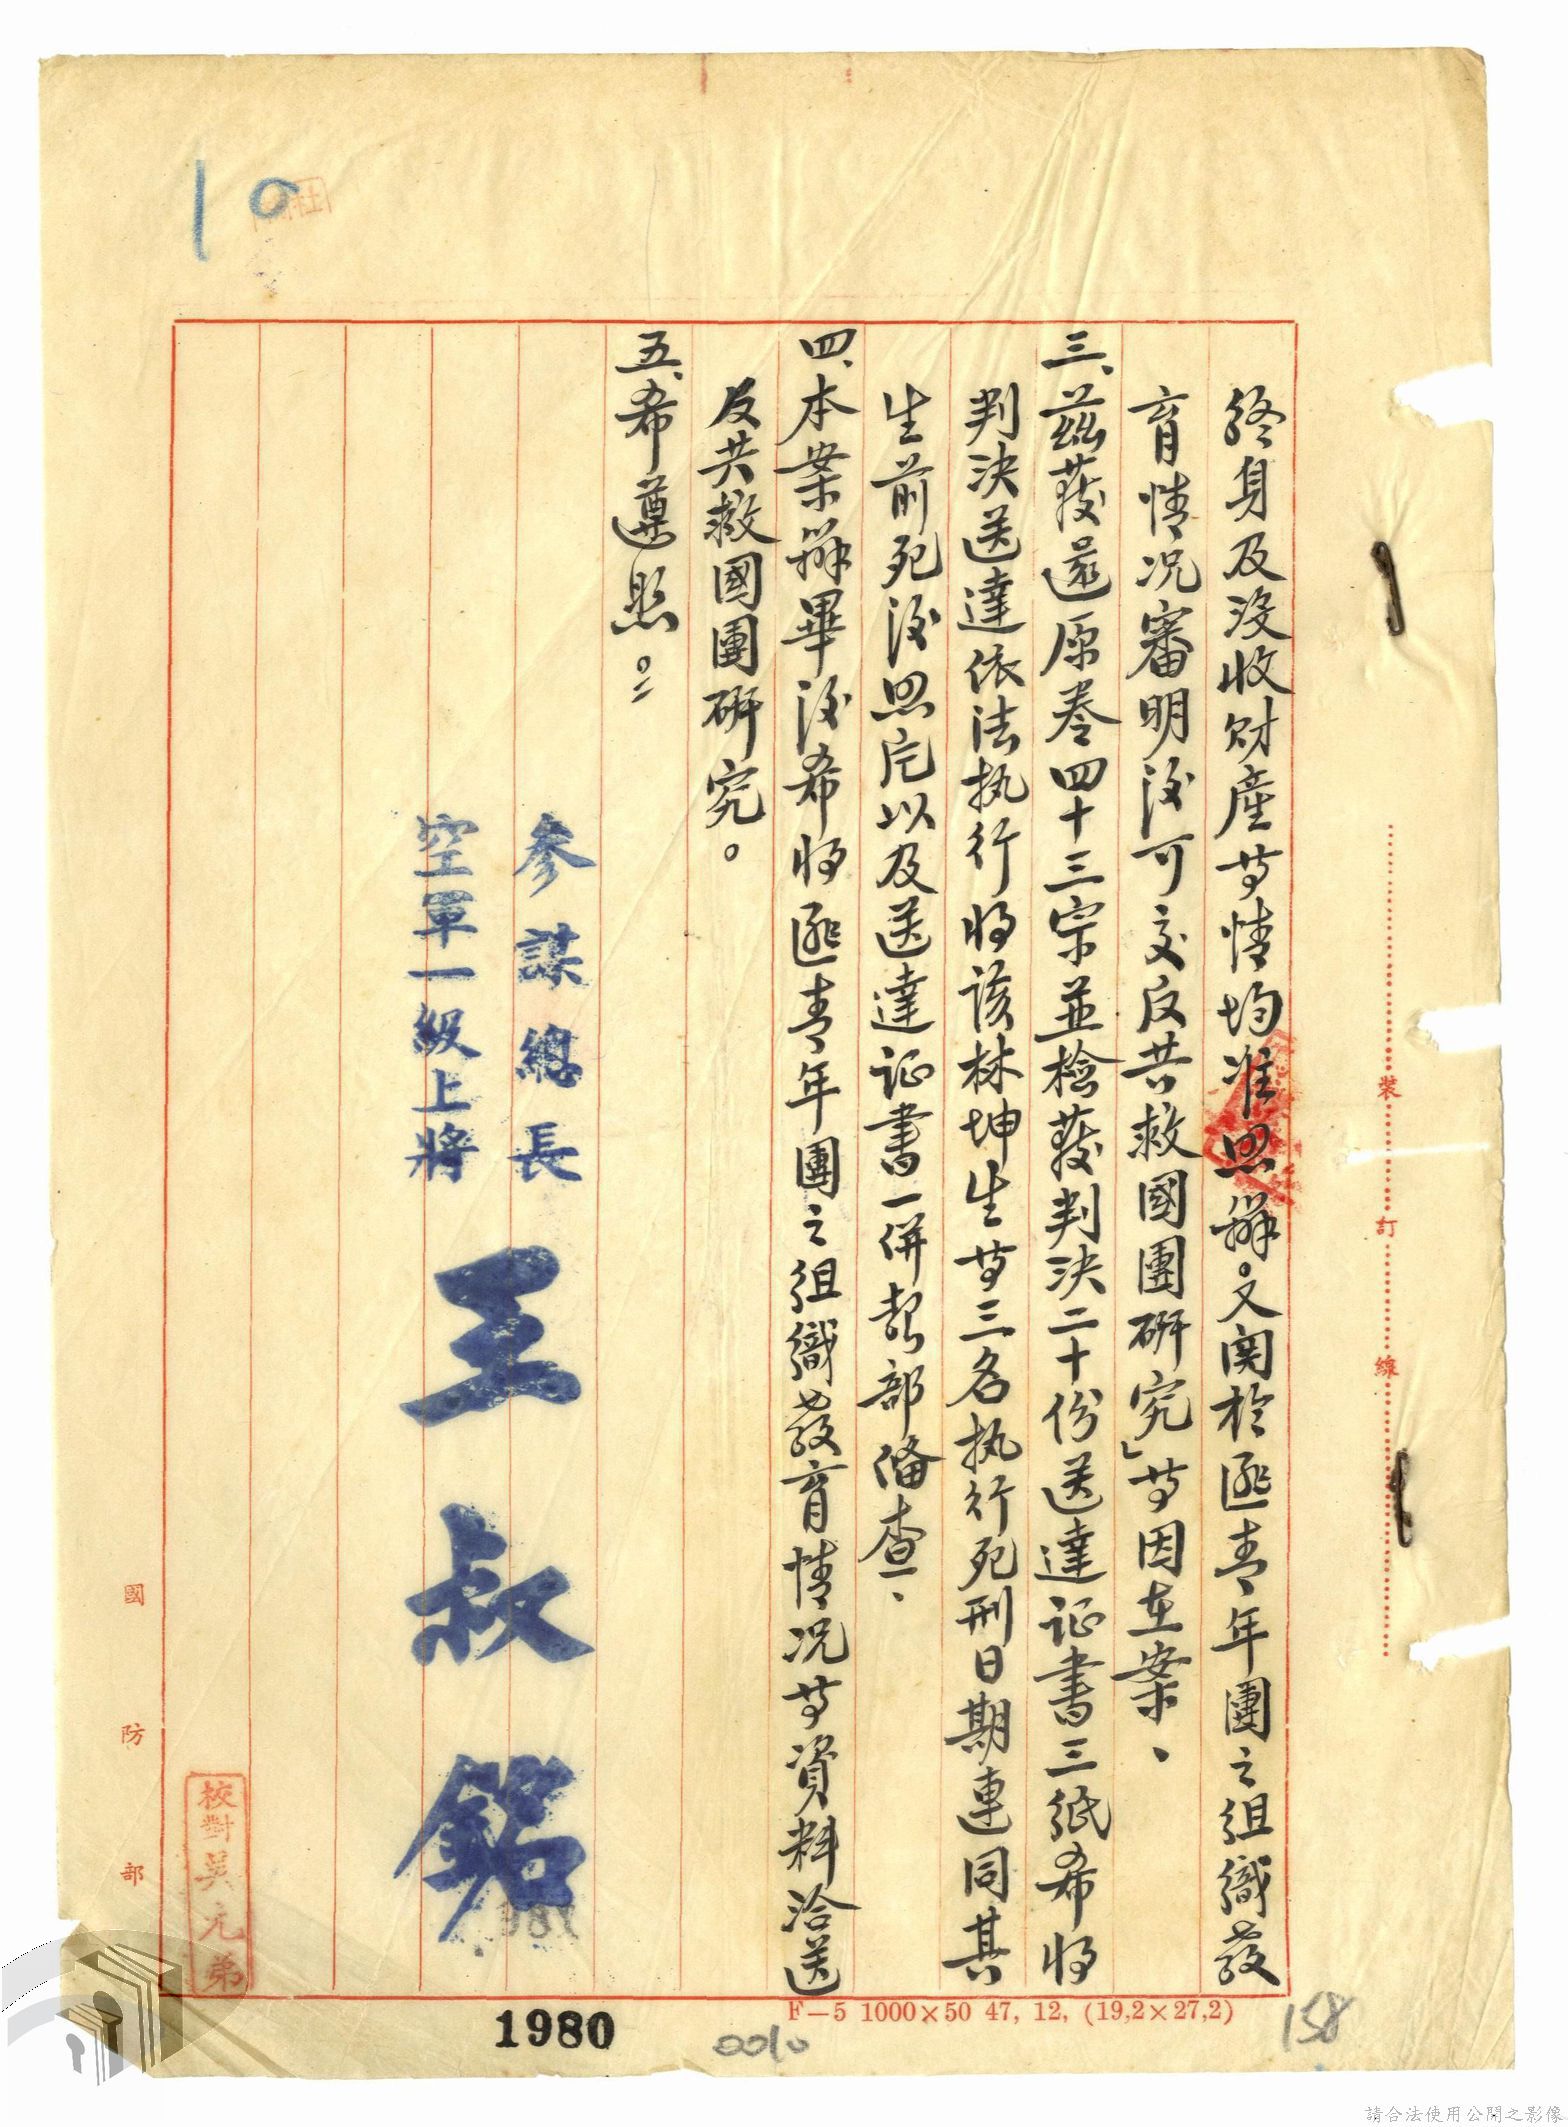 10
終身及沒收財產等情均准照辦。又關於匪青年團之組織教
育情况審明後可交反共救國團研究」等因在案、
三、茲發還原卷四十三宗並檢發判決二十份送達証書三紙希將
判決送達依法执行將該林坤生等三名执行死刑日期連同其
生前死後照片以及送達証書一併報部備查、
四、本案辦畢後希將匪青年團之組織教育情况等資料洽送
反共救國團研究。
五、希遵照。
參謀總長
空軍一級上將
王叔銘
校對吳元弟
國防部
裝訂線
F—5 1000×50 47, 12, (19,2×27,2)
1980
0010
158
請合法使用公開之影像